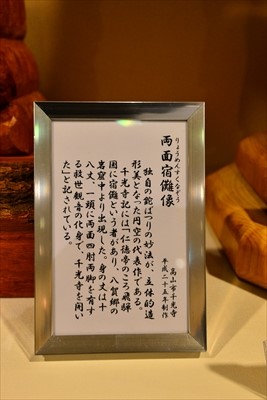 りょうめんすくなぞう
両面宿儺像
高山市千光寺
平成二十五年制作
独自の鉈ばつりの妙法が、立体的造
形美となった円空の代表作である。
千光寺記には、仁徳帝のころ飛騨
国に宿儺という者があり、八賀郷の
岩窟中より出現した。身の丈は十
八丈、一頭に両面四肘両脚を有す
る救世観音の化身で、千光寺を開い
た」と記されている。